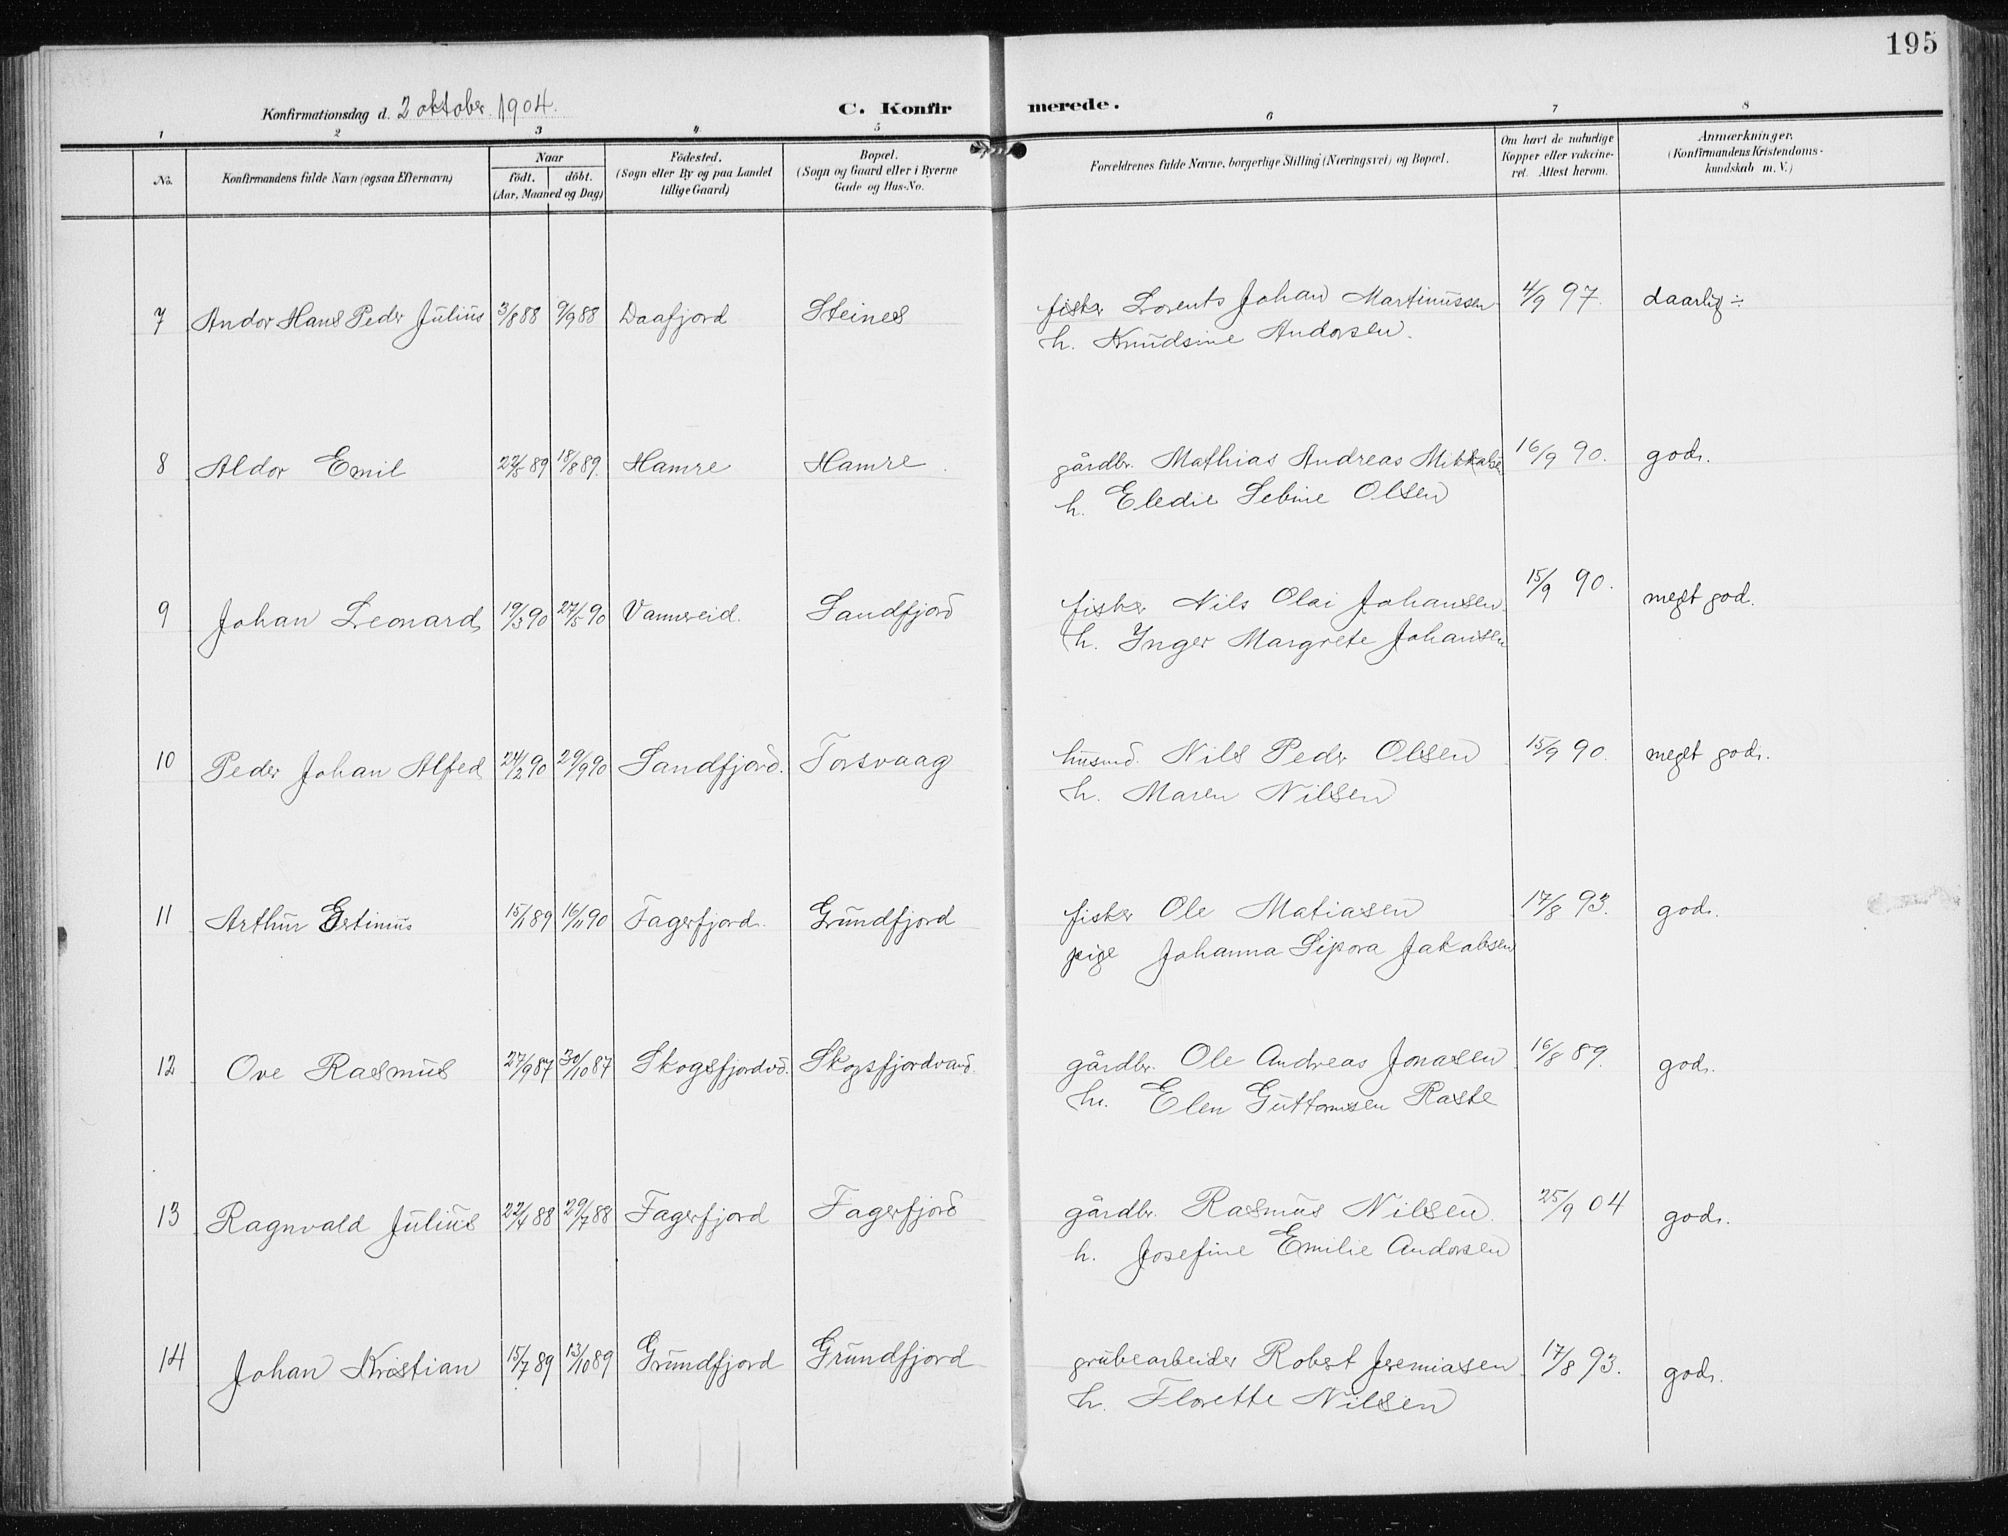 195
Konfirmationsdag d. 2 oktober 1904.
C. Konfirmerede.
1 2 3 4 5 6 7 8
No.
Konfirmandens fulde Navn (ogsaa Efternavn)
Naar
født. døbt.
(Aar, Maaned og Dag)
Födested.
(Sogn eller By og paa Landet
tillige Gaard)
Bopæl.
(Sogn og Gaard eller i Byerne
Gade og Hus-No.
Forældrenes fulde Navne, borgerlige Stilling (Næringsvei) og Bopæl.
Om havt de naturlige
Kopper eller vakcine-
ret. Attest herom.
Anmærkninger.
(Konfirmandens Kristendoms-
kundskab m. V.)
7 Andor Hans Peder Julius 3/8 88 9/9 88 Daafjord Steines fisker Lorents Johan Martinussen 4/9 97. daarlig ÷
h. Knudsine Andorsen.
8 Aldor Emil 89 18/8 89. Hamre Hamre. gårdbr. Mathias Andreas Mikkalsen 16/9 90. god.
h. Eledie Sebine Olsen
9 Johan Leonard 19/3 90 27/5 90 Vannereid. Sandfjord fisker Nils Olai Johansen 15/9 90. meget god.
h. Inger Margrete Johansen
10 Peder Johan Alfed 24/2 90 29/9 90 Sandfjord. Torsvaag husmd. Nils Peder Olsen 15/9 90. meget god.
h. Maren Nilsen
11 Arthur Ertinius 89 90 Fagerfjord. Grundfjord fisker Ole Matiasen 17/8 93. god.
pige Johanna Sipora Jakobsen
12 Ove Rasmus 27/9 87 30/10 87 Skogsfjordvd. Skogsfjordvand. gårdbr. Ole Andreas Jonasen 16/8 89. god.
h. Elen Guttormsen Raste
13 Ragnvald Julius 22/4 88 29/7 88 Fagerfjord Fagerfjord gårdbr. Rasmus Nilsen. 25/9 04 god.
h. Josefine Emilie Andorsen
14 Johan Kristian 15/7 89 13/10 89 Grundfjord Grundfjord grubearbeider Robert Jeremiasen 17/8 93. god.
h. Florette Nilsen